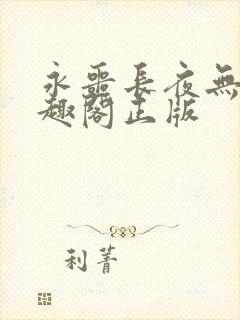 永噩長夜無
趣閣正版
利菁